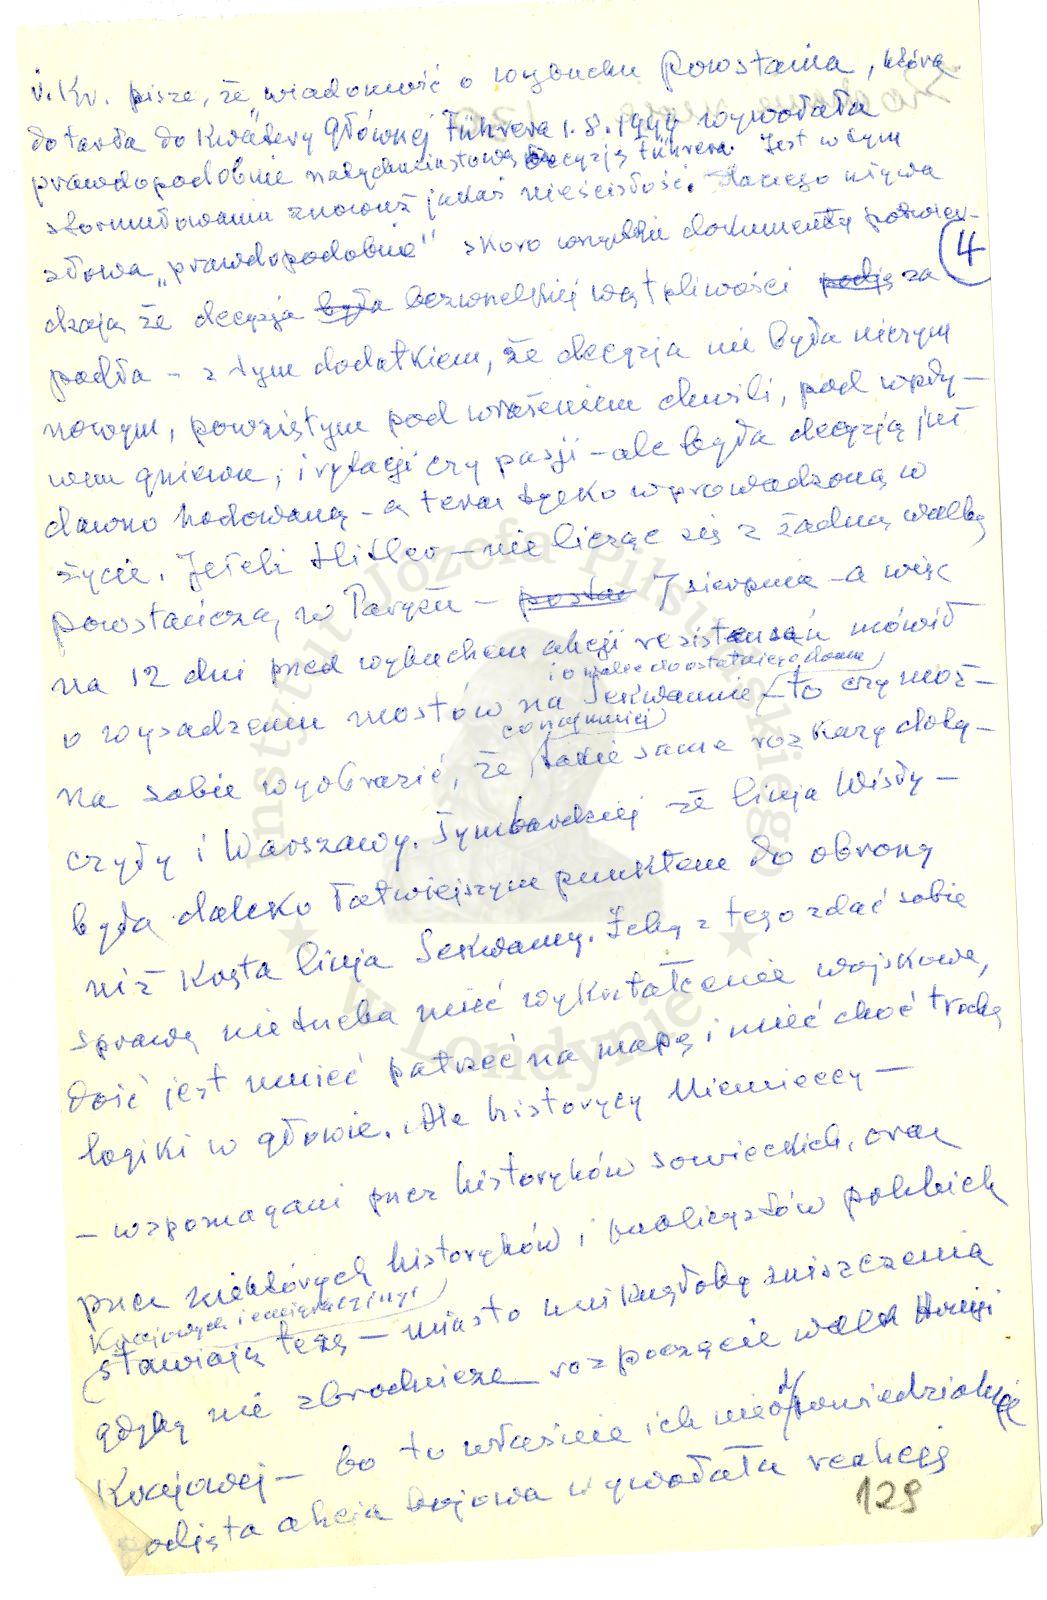 v. Kr. pisze, że „wiadomość o wybuchu Powstania, która
dotarła do Kwatery Głównej Führera 1.8.1944 wywołała
prawdopodobnie natychmiastową decyzję Führera. Jest w tym
sformułowaniu znowuż jakaś nieścisłość. Dlaczego używa
słowa „prawdopodobnie" skoro wszystkie dokumenty potwier-
4
dzają że decyzja była bezwzględniej wątpliwości podję za
padła – z tym dodatkiem, że decyzja nie była niczym
nowym, powziętym pod wrażeniem chwili, pod wpły-
wem gniewu, irytacji czy pasji – ale była decyzją już
dawno hodowaną – a teraz tylko wprowadzoną w
życie. Jeżeli Hitler – nie licząc się z żadną walką
powstańczą, w Paryżu – 7 sierpnia – a więc
na 12 dni przed wybuchem akcji resistance'u mówił
i o walce do ostatniego domu
o wysadzeniu mostów na Sekwannie – to czy moż-
co najmniej
na sobie wyobrazić, że takie same rozkazy doty-
czyły i Warszawy. Tymbardziej że linja Wisły –
była daleko łatwiejszym punktem do obrony
niż kręta linja Sekwanny. Żeby z tego zdać sobie
sprawę nie trzeba mieć wykształcenie wojskowe,
dość jest umieć patrzeć na mapę i mieć choć trochę
logiki w głowie. Ale historycy Niemieccy –
– wspomagani przez historyków sowieckich, oraz
przez niektórych historyków i publicystów polskich
Krajowych i emigracyjnych
stawiają tezę – miasto uniknęłoby zniszczenia
gdyby nie zbrodnicze rozpoczęcie walk Armji
Krajowej – bo to właśnie ich nieodpowiedzialnie
podjęta akcja bojowa wywołała reakcję
129
Instytut Józefa Piłsudskiego
w Londynie